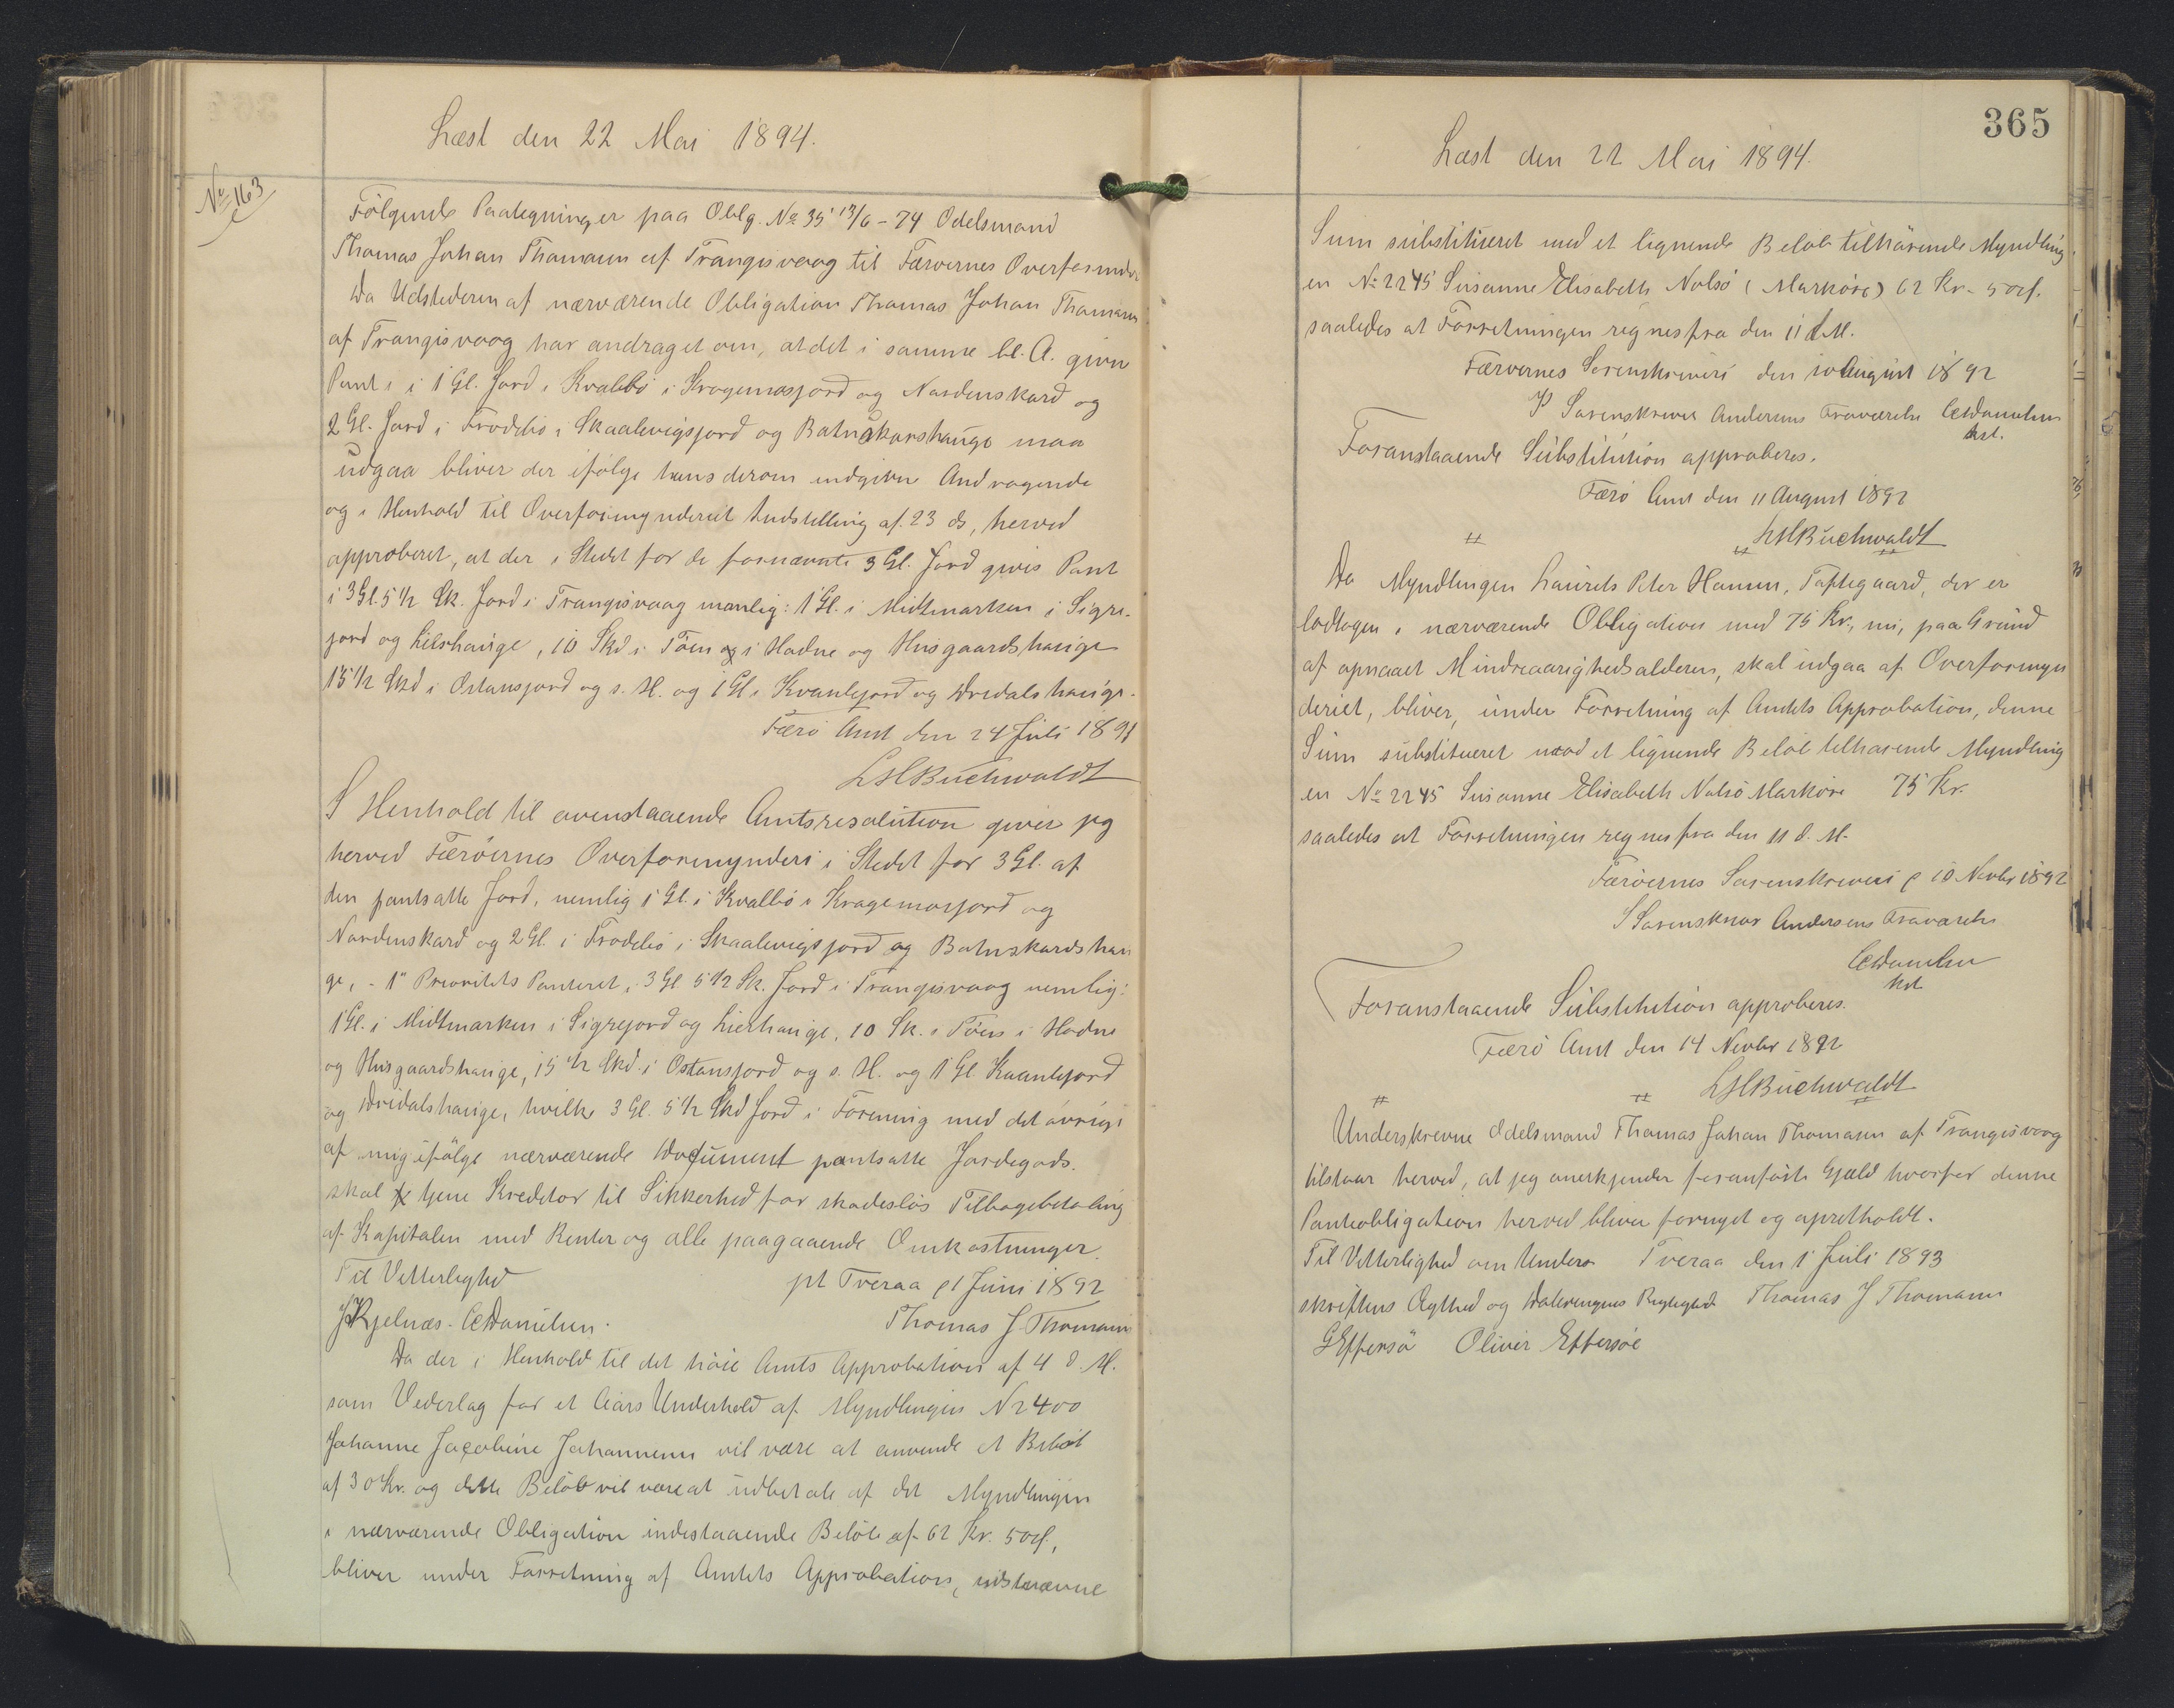 Læst den 22 Mai 1894.
No 163
Følgende Paategninger paa Oblg. No 35 13/6-74 Odelsmand
Thomas Johan Thomasen af Trangisvaag til Færøernes Overformynder
Da Udstederen af nærværende Obligation Thomas Johan Thomasen
af Trangisvaag har andraget om, at det i samme bl. A. givne
Pant i 1 Gl. Jord i Kvalbø i Kragemosjord og Nordenskard og
2 Gl. Jord i Frodebø i Skaalevigsjord og Botnskarshauge maa
udgaa bliver der ifølge hans derom indgivne Andragende
og i Henhold til Overformynderiet Indstilling af 23 ds, herved
approberet, at der i Stedet for de fornævnte 3 Gl. Jord gives Pant
i 3 Gl. 5 1/2 Sk. Jord i Trangisvaag nemlig: 1 Gl. i Midtmarken i Sigre-
jord og Lierhauge, 10 Skd i Töen og i Hadne og Husgaardshauge
15 1/2 Skd i Ostansjord og s. H. og 1 Gl. i Kvanlejord og Dredalshauge.
Færø Amt den 24 Juli 1891
LHBuchwaldt
I Henhold til ovenstaaende Amtsresolution giver jeg
herved Færøernes Overformynderi i Stedet for 3 Gl. af
den pantsatte Jord, nemlig 1 Gl. i Kvalbø i Kragemosjord og
Nordenskard og 2 Gl. i Frodebø i Skaalevigsjord og Botnskardshau
ge, - 1" Prioritets Panteret, i 3 Gl 5 1/2 Sk. Jord i Trangisvaag nemlig:
1 Gl. i Midtmarken i Sigrejord og Lierhauge, 10 Sk. i Töen i Hadne
og Husgaardshauge, 15 1/2 Skd. i Ostansjord og s. H. og 1 Gl. Kvanlejord
og Dredalshauge, hvilke 3 Gl. 5 1/2 Skd Jord i Forening med det øvrige
af mig ifølge nærværende Document pantsatte Jordegods.
skal tjene Kreditor til Sikkerhed for skadesløs Tilbagebetaling
af Kapitalen med Renter og alle paagaaende Omkostninger.
Til Vitterlighed pt Tveraa d 1 Juni 1892
JKjelnæs. CDanielsen. Thomas J. Thomasen
Da der i Henhold til det høie Amts Approbation af 4 d. M.
som Vederlag for et Aars Underhold af Myndlingen No 2400
Johanne Jacobine Johannesen vil være at anvende et Beløb
af 30 Kr. og dette Beløb vil være at udbetale af det Myndlingen
i nærværende Obligation indestaaende Beløb af 62 Kr. 50 Ø.,
bliver under Forretning af Amtets Approbation, sidstnævnte
365
Læst den 22 Mai 1894.
Sum substitueret med et lignende Beløb tilhørende Myndling
en No 2245 Susanne Elisabeth Nolsø (Markøre) 62 Kr. 50 Ø.
saaledes at Forretningen regnes fra den 11 d. M.
Færøernes Sorenskriveri den 10 August 1892
I Sorenskriver Andersens Fraværelse CDanielsen
kst.
Foranstaaende Substitution approberes.
Færø Amt den 11 August 1892
LHBuchwaldt
Da Myndlingen Laurits Peter Hansen, Toftegaard, der er
lodtagen i nærværende Obligation med 75 Kr., nu, paa Grund
af opnaaet Mindreaarighedsalderen, skal udgaa af Overformyn
deriet, bliver, under Forretning af Amtets Approbation, denne
Sum substitueret mod et lignende Beløb tilhørende Myndling
en No 2245 Susanne Elisabeth Nolsö Markøre 75 Kr.
saaledes at Forretningen regnes fra den 11 d. M.
Færöernes Sorenskriveri d 10 Novbr 1892
I Sorenskriver Andersens Fraværelse
CDanielsen
kst
Foranstaaende Substitution approberes.
Færö Amt den 14 Novbr 1892
LHBuchwaldt
Underskrevne Odelsmand Thomas Johan Thomasen af Trangisvaag
tilstaar herved, at jeg anerkjender foranførte Gjæld hvorfor denne
Panteobligation herved bliver fornyet og opretholdt.
Til Vitterlighed om Under- Tveraa den 1 Juli 1893
skriftens Ægthed og Dateringens Rigtighed Thomas J Thomasen
GEffersö Oliver Effersöe